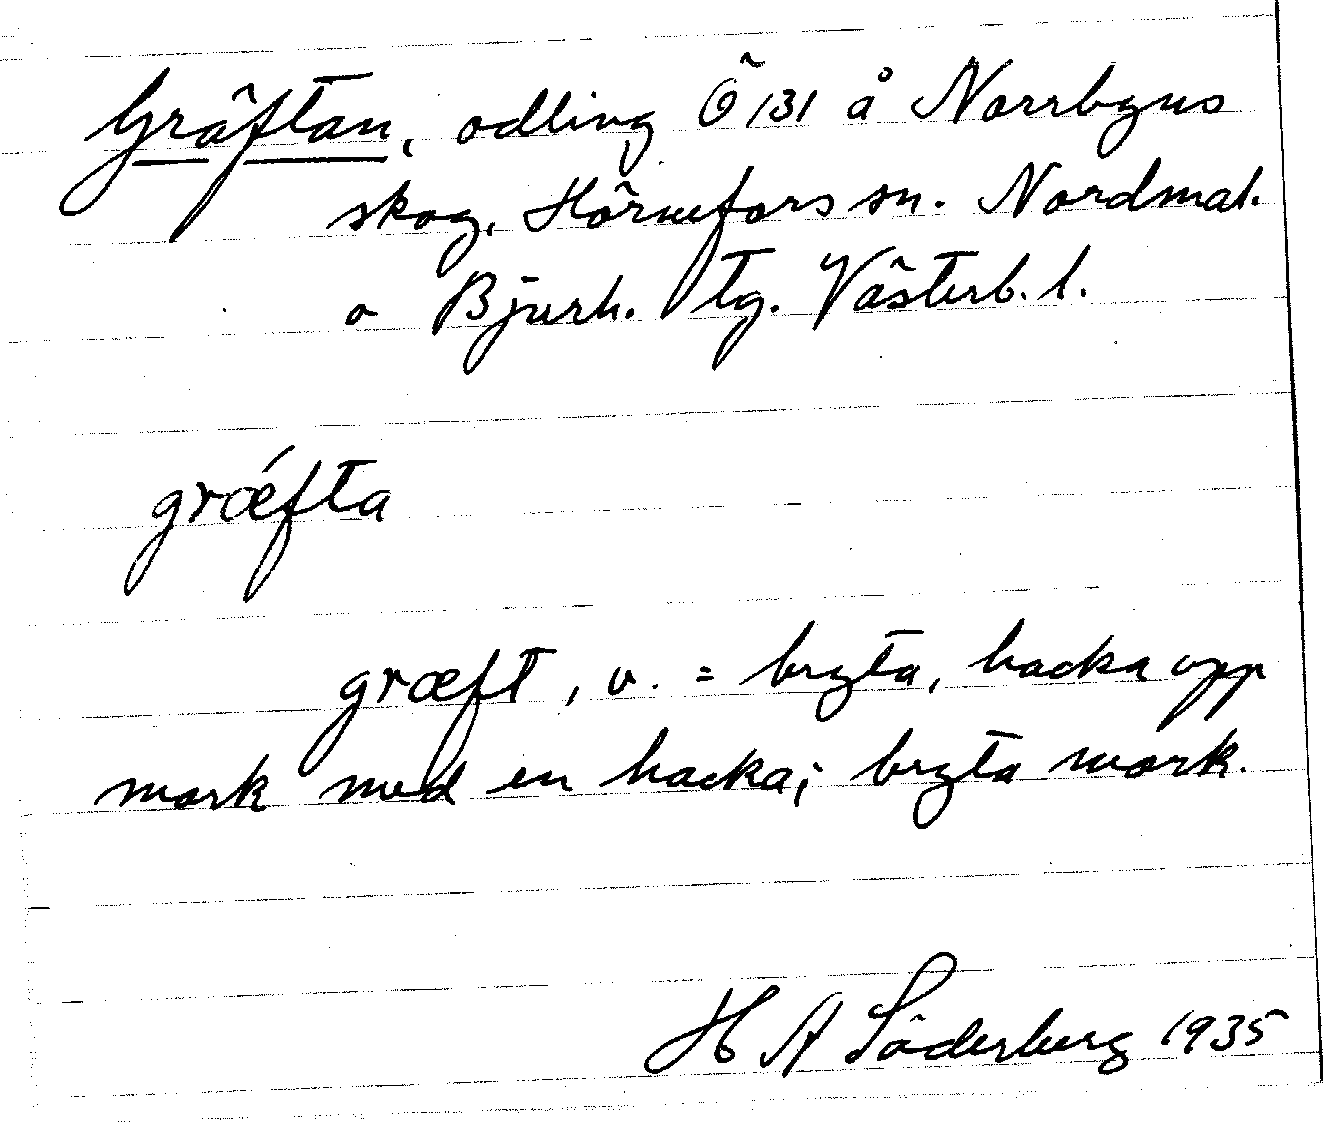 Gräftan, odling Ö 131 å Norrbyns
skog, Hörnefors sn. Nordmal.
o Bjurh. tg. Västerb. l.
grǽfta
græft, v. = bryta, hacka upp
mark med en hacka; bryta mark.
H A Söderberg 1935